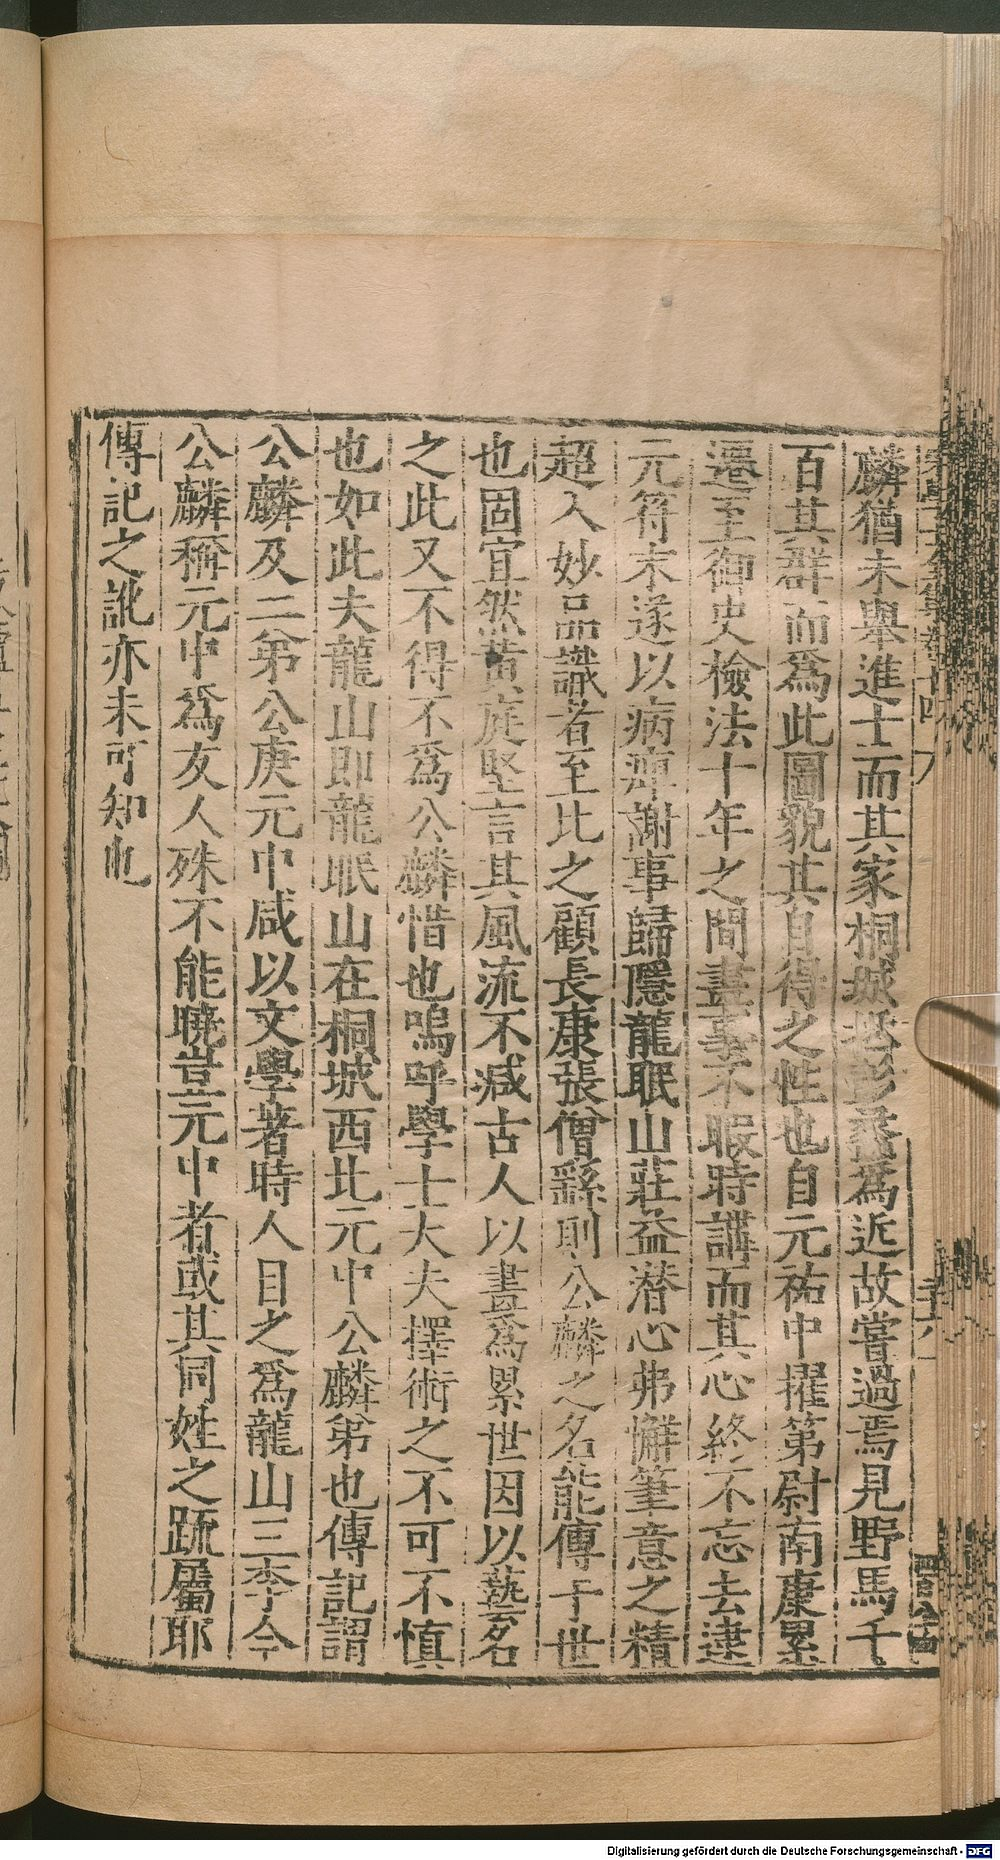 麟猶未舉進士而其家桐城於彭蠡為近故嘗過焉見野馬千
百其群而為此圖貌其自得之性也自元祐中擢第尉南康累
遷至御史檢法十年之間盡事不暇時講而其心終不忘去逮
元符末遂以病痺謝事歸隱龍眠山莊益潛心弗懈筆意之精
超入妙品識者至比之顧長康張僧繇則公麟之名能傳于世
也固宜然黃庭堅言其風流不減古人以畫為累世因以藝名
之此又不得不為公麟惜也嗚呼學士大夫擇術之不可不慎
也如此夫龍山即龍眠山在桐城西北元中公麟弟也傳記謂
公麟及二弟公庚元中咸以文學著時人目之為龍山三李今
公麟稱元中為友人殊不能曉豈元中者或其同姓之疏屬耶
傳記之訛亦未可知也
Digitalisierung gefördert durch die Deutsche Forschungsgemeinschaft - DFG